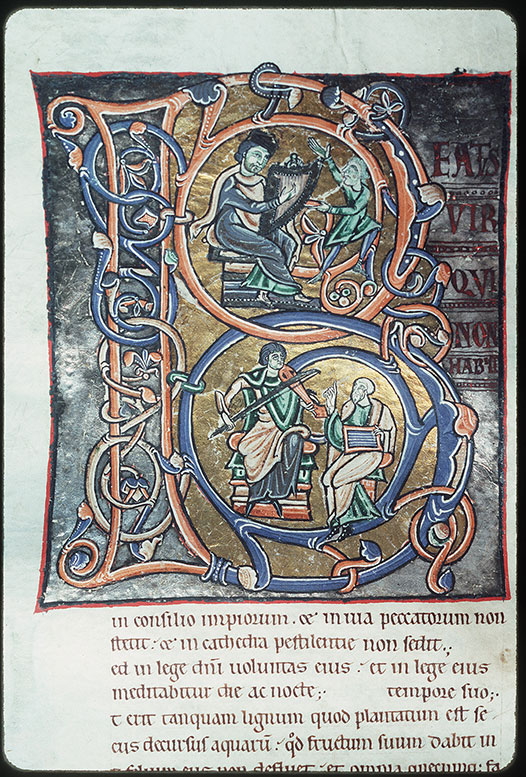 BEATS
VIR
QUI
NON
HAB'II
in consilio impiorum. & in uia peccatorum non
stetit: & in cathedra pestilentie non sedit.,
ed in lege dni uoluntas eius: et in lege eius
meditabitur die ac nocte;. tempore suo;.
t erit tanquam lignum quod plantatum est se
cus decursus aquarū: qd fructum suum dabit in
folium eius non defluet: et omnia quecunq; fa